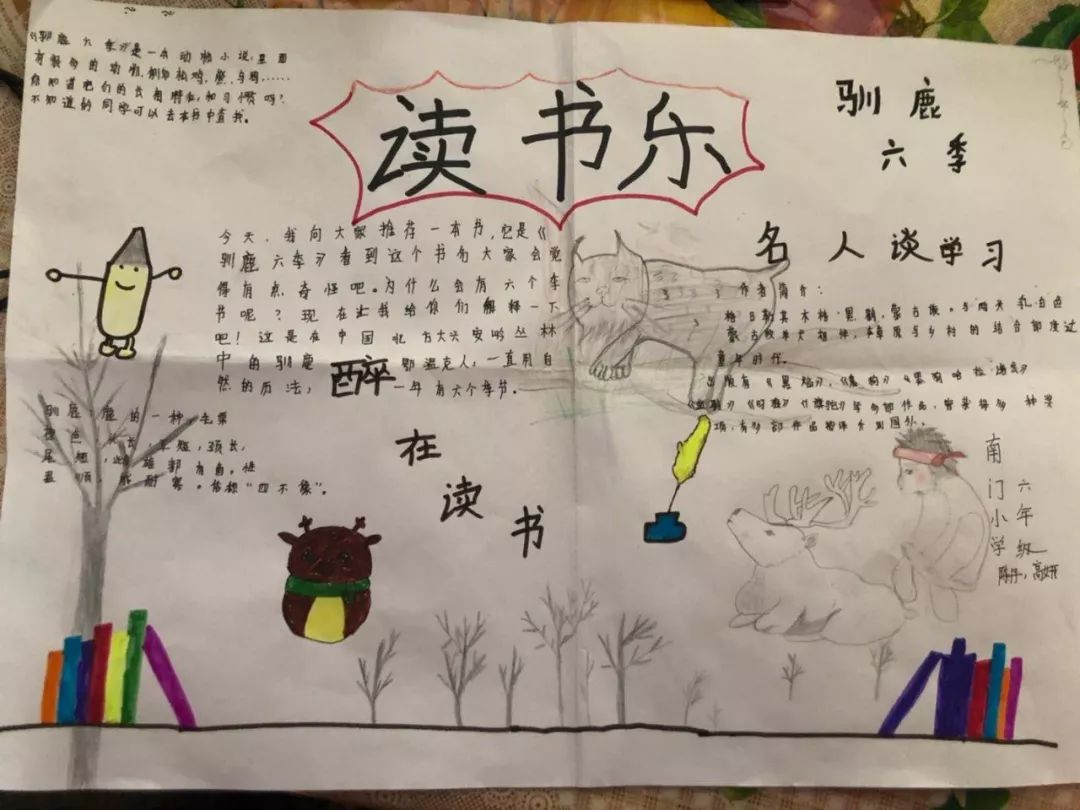 《驯鹿六季》是一本动物小说,里面
有很多的动物,例如松鸡,熊,乌鸦……
你知道它们的长相特征和习惯吗?
不知道的同学可以去本书中查找。
读书乐
驯鹿
六季
今天,我向大家推荐一本书,它是《
驯鹿六季》看到这个书名大家会觉
得有点奇怪吧。为什么会有六个季
节呢?现在让我给你们解释一下
吧!这是在中国北方大兴安岭丛林
中的驯鹿鄂温克人,一直用自
然的历法,一年有六个季节。
醉
在
读
书
驯鹿:鹿的一种,毛栗
色,长,短,颈长,
尾短,雌雄都有角。性
温顺,能耐寒。俗称“四不像”。
名人谈学习
作者简介:
格日勒其木格·黑鹤,蒙古族。与两头乳白色
蒙古牧羊犬相伴,草原与乡村的结合部度过
童年时代。
出版有《黑焰》、《鬼狗》
《血驹》等多部作品,曾获每多种奖
项,有多部作品被译介到国外。
南门小学
六年级